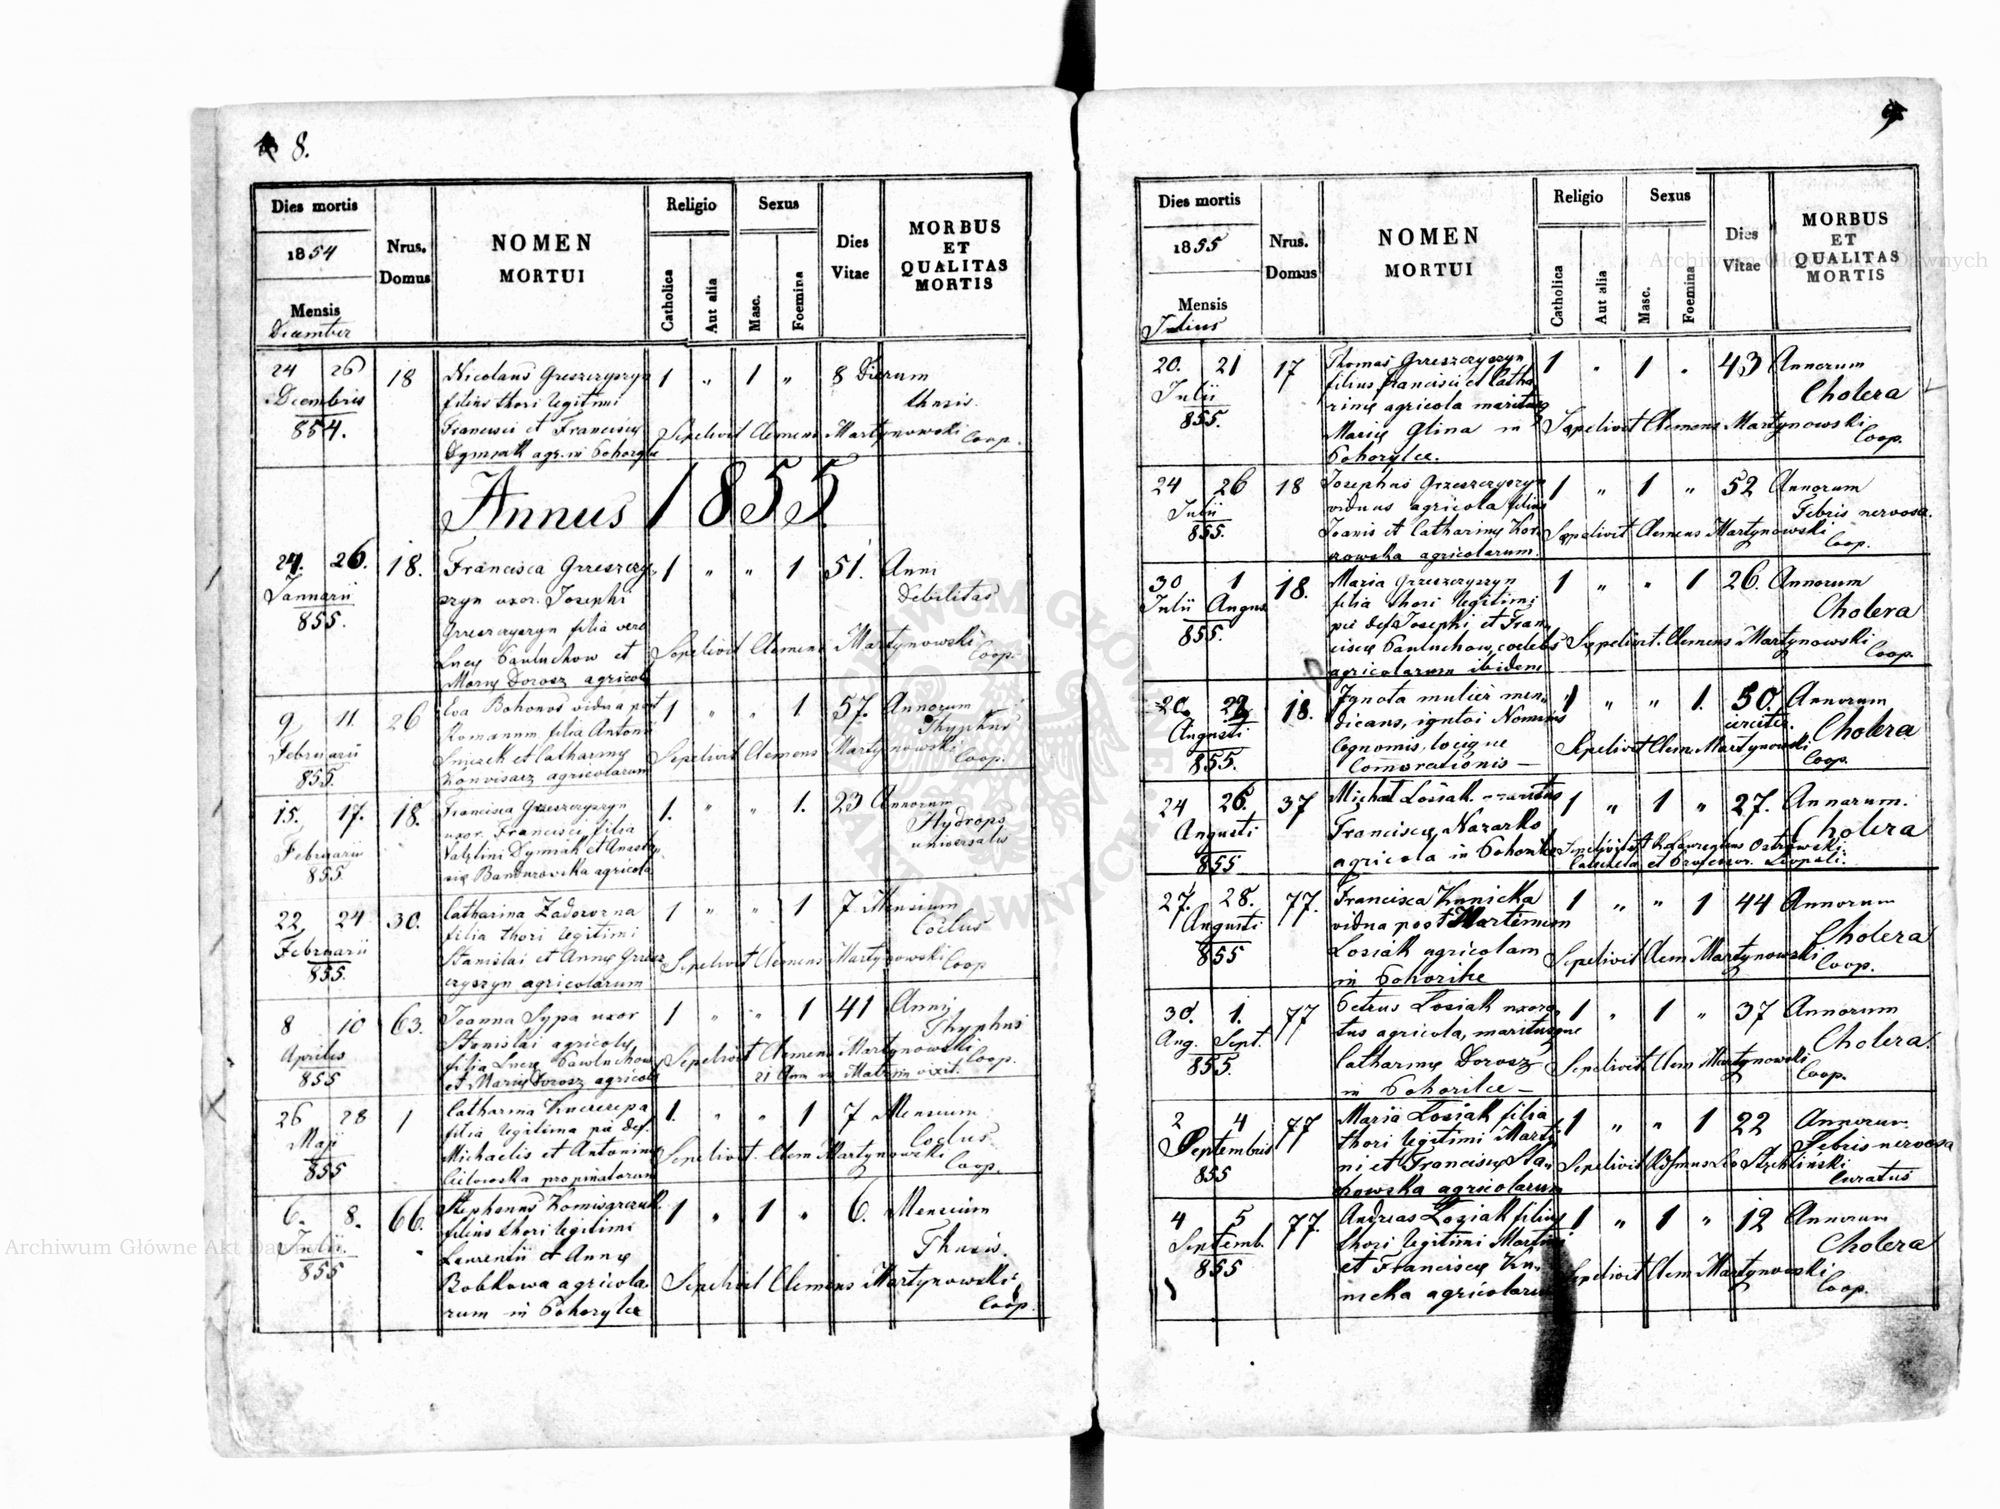 8.
Dies mortis
1854
Mensis
December
Nrus. Domus
NOMEN MORTUI
Religio
Catholica
Aut alia
Sexus
Masc.
Foemina
Dies Vitae
MORBUS ET QUALITAS MORTIS
24 26 18 Nicolaus Grzeszczyszyn 1 " 1 " 8 Dierum
Decembris filius thori legitimi thusis.
854. Francisci et Franciscę Sepelivit Clemens Martynowski Coop.
Dymiak agr. in Pohorylce
Annus 1855.
24. 26. 18. Francisca Grzeszczy- 1 " " 1 51. Anni
Januarii szyn uxor Josephi Debilitas
855. Grzeszczyszyn filia vero
Lucę Pawluchow et Sepelivit Clemens Martynowski Coop.
Marię Dorosz agricol.
9 11. 26 Eva Bohonos vidua post 1 " " 1. 57. Annorum
Februarii Romanum filia Antonii Thyphus
et Catharinę Sepelivit Clemens Martynowski Coop.
855. agricolarum
15. 17. 18. Francisca Grzeszczyszyn 1. " " 1. 23 Annorum
Februarii uxor Francisci, filia Hydrops
855 Dymiak et universalis
Bandurowska agricola
22 24 30. Catharina Zadorozna 1 " " 1 7 Mensium
Februarii filia thori legitimi Coctus
855. Stanislai et Annę Grzesz- Sepelivit Clemens Martynowski Coop
czyszyn agricolarum
8 10 63. Joanna Sypa uxor 1 " " 1 41 Anni
Aprilis Stanislai agricolę Thyphus
855 filia Lucę Pawluchow Sepelivit Clemens Martynowski Coop.
et Marię Dorosz agricol. 21 Ann in Matrim vixit.
26 28 1 Catharina 1. " " 1 7 Mensium
Maji filia legitima pie def. Coctus
855 Michaelis et Antoninę Sepelivit Clem Martynowski Coop.
propinatorum
6. 8. 66. Stephanus 1 " 1 " 6. Mensium
Julii filius thori legitimi Thusis.
855 Laurentii et Annę
Bobkowa agricola- Sepelivit Clemens Martynowski Coop.
rum in Pohorylce
9.
Dies mortis
1855
Mensis
Julius
Nrus. Domus
NOMEN MORTUI
Religio
Catholica
Aut alia
Sexus
Masc.
Foemina
Dies Vitae
MORBUS ET QUALITAS MORTIS
20. 21 17 Thomas Grzeszczyszyn 1 " 1 " 43 Annorum
Julii filius Francisci et Catha- Cholera
855. rinę agricola maritus
Marię Glina in Sepelivit Clemens Martynowski Coop.
Pohorylce.
24 26 18 Josephus Grzeszczyszyn 1 " 1 " 52 Annorum
Julii viduus agricola filius Febris nervosa.
855. Joanis et Catharinę Sepelivit Clemens Martynowski Coop.
agricolarum.
30 1 18. Maria Grzeszczyszyn 1 " " 1 26. Annorum
Julii Augus filia thori legitimi Cholera
855. pie def Josephi et Fran-
ciscę Pawluchow, coelebs Sepelivit Clemens Martynowski Coop.
agricolarum ibidem
20. 22 18. Ignota mulier men- 1 " " 1. 50. Annorum
Augusti dicans, ignoti Nominis circiter. Cholera
855. Cognomis, locique Sepelivit Clem. Martynowski Coop.
Comorationis —
24 26. 37 Michal Losiak maritus 1 " 1 " 27. Annorum.
Augusti Franciscę Nazarko Cholera
855 agricola in Pohorilce Sepelivit Ostrowski
et Professor Leopoli.
27. 28. 77. Francisca Kunicka 1 " " 1 44 Annorum
Augusti vidua post Martinum Cholera
855 Losiak agricolam Sepelivit Clem Martynowski Coop.
in Pohorilce
30. 1. 77 Petrus Losiak uxora- 1 " 1 " 37 Annorum
Aug. Sept. tus agricola, maritusque Cholera.
855. Catharinę Dorosz Sepelivit Clem Martynowski Coop.
in Pohorilce —
2 4 77 Maria Losiak filia 1 " " 1 22 Annorum
Septembris thori legitimi Marti- Febris nervosa
855 ni et Franciscę Sepelivit Curatus
agricolarum
4 5 77. Andreas Losiak filius 1 " 1 " 12 Annorum
Septemb. thori legitimi Martini Cholera
855 et Franciscę Ku- Sepelivit Clem Martynowski Coop.
nicka agricolarum
ARCHIWUM GŁÓWNE AKT DAWNYCH
Archiwum Główne Akt Dawnych
Archiwum Główne Akt Da